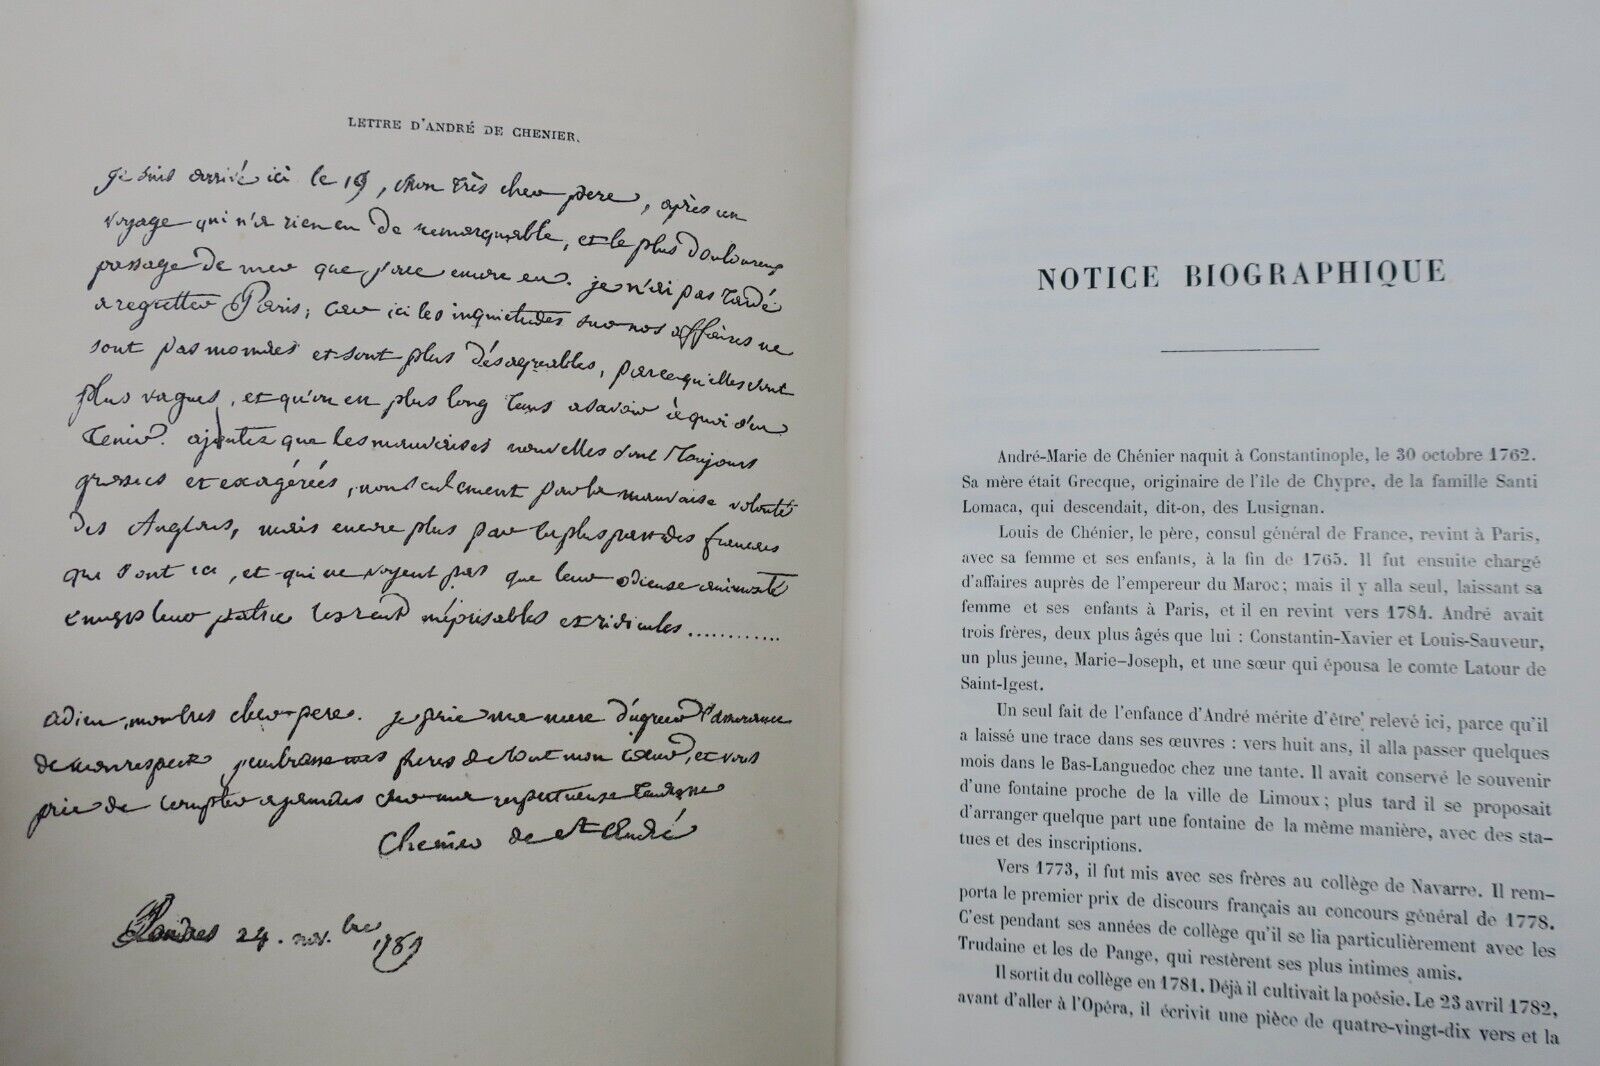 LETTRE D'ANDRÉ DE CHENIER.
je suis arrivé ici le 19, mon très cher pere, après un
voyage qui n'a rien eu de remarquable, et le plus douloureux
passage de mer que j'aie encore eu. je n'ai pas tardé
a regretter Paris; car ici les inquietudes sur nos affaires ne
sont pas moindres et sont plus désagreables, parcequ'elles sont
plus vagues, et qu'on en plus long tems a savoir à quoi s'en
tenir. ajoutez que les mauvaises nouvelles sont toujours
grossies et exagérées, non seulement par la mauvaise volonté
des Anglais, mais encore plus par la plus part des francais
qui sont ici, et qui ne voyent pas que leur odieuse animosité
envers leur patrie les rend méprisables et ridicules............
adieu, mon tres cher pere. je prie ma mere d'agreer l'assurance
de mon respect, j'embrasse mes freres de tout mon coeur, et vous
prie de compter a jamais sur ma respectueuse tendresse
Chenier de St André
Londres 24. nov.bre 1789
NOTICE BIOGRAPHIQUE
André-Marie de Chénier naquit à Constantinople, le 30 octobre 1762.
Sa mère était Grecque, originaire de l'île de Chypre, de la famille Santi
Lomaca, qui descendait, dit-on, des Lusignan.
Louis de Chénier, le père, consul général de France, revint à Paris,
avec sa femme et ses enfants, à la fin de 1765. Il fut ensuite chargé
d'affaires auprès de l'empereur du Maroc; mais il y alla seul, laissant sa
femme et ses enfants à Paris, et il en revint vers 1784. André avait
trois frères, deux plus âgés que lui : Constantin-Xavier et Louis-Sauveur,
un plus jeune, Marie-Joseph, et une sœur qui épousa le comte Latour de
Saint-Igest.
Un seul fait de l'enfance d'André mérite d'être relevé ici, parce qu'il
a laissé une trace dans ses œuvres : vers huit ans, il alla passer quelques
mois dans le Bas-Languedoc chez une tante. Il avait conservé le souvenir
d'une fontaine proche de la ville de Limoux; plus tard il se proposait
d'arranger quelque part une fontaine de la même manière, avec des sta-
tues et des inscriptions.
Vers 1773, il fut mis avec ses frères au collège de Navarre. Il rem-
porta le premier prix de discours français au concours général de 1778.
C'est pendant ses années de collège qu'il se lia particulièrement avec les
Trudaine et les de Pange, qui restèrent ses plus intimes amis.
Il sortit du collège en 1781. Déjà il cultivait la poésie. Le 23 avril 1782,
avant d'aller à l'Opéra, il écrivit une pièce de quatre-vingt-dix vers et la